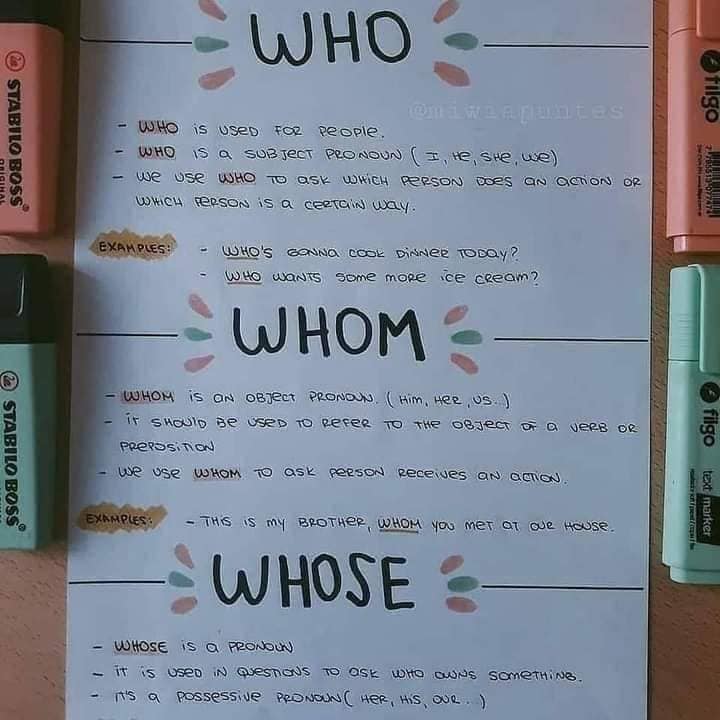 WHO
@miwiapuntes
- WHO is used for people.
- WHO is a subject pronoun (I, He, She, we)
- we use WHO to ask which person does an action or
which person is a certain way.
EXAMPLES:
- WHO's gonna cook dinner today?
- WHO wants some more ice cream?
WHOM
- WHOM is an object pronoun. (Him, Her, us...)
- it should be used to refer to the object of a verb or
preposition
- we use WHOM to ask person receives an action.
EXAMPLES:
- This is my brother, whom you met at our house.
WHOSE
- WHOSE is a pronoun
- it is used in questions to ask who owns something.
- it's a possessive pronoun (Her, His, our...)
STABILO BOSS®
ORIGINAL
STABILO BOSS®
filgo
filgo
text marker